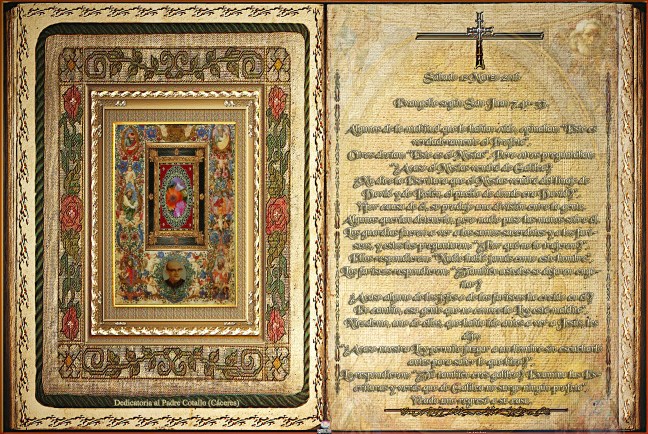 Sábado 12 Marzo 2016
Evangelio según San Juan 7,40-53.
Algunos de la multitud que lo habían oído, opinaban: "Este es
verdaderamente el Profeta".
Otros decían: "Este es el Mesías". Pero otros preguntaban:
"¿Acaso el Mesías vendrá de Galilea?
¿No dice la Escritura que el Mesías vendrá del linaje de
David y de Belén, el pueblo de donde era David?".
Y por causa de él, se produjo una división entre la gente.
Algunos querían detenerlo, pero nadie puso las manos sobre él.
Los guardias fueron a ver a los sumos sacerdotes y a los fari-
seos, y estos les preguntaron: "¿Por qué no lo trajeron?".
Ellos respondieron: "Nadie habló jamás como este hombre".
Los fariseos respondieron: "¿También ustedes se dejaron enga-
ñar?
¿Acaso alguno de los jefes o de los fariseos ha creído en él?
En cambio, esa gente que no conoce la Ley está maldita".
Nicodemo, uno de ellos, que había ido antes a ver a Jesús, les
dijo:
"¿Acaso nuestra Ley permite juzgar a un hombre sin escucharlo
antes para saber lo que hizo?".
Le respondieron: "¿Tú también eres galileo? Examina las Es-
crituras y verás que de Galilea no surge ningún profeta".
Y cada uno regresó a su casa.
Dedicatoria al Padre Cotallo (Cáceres)